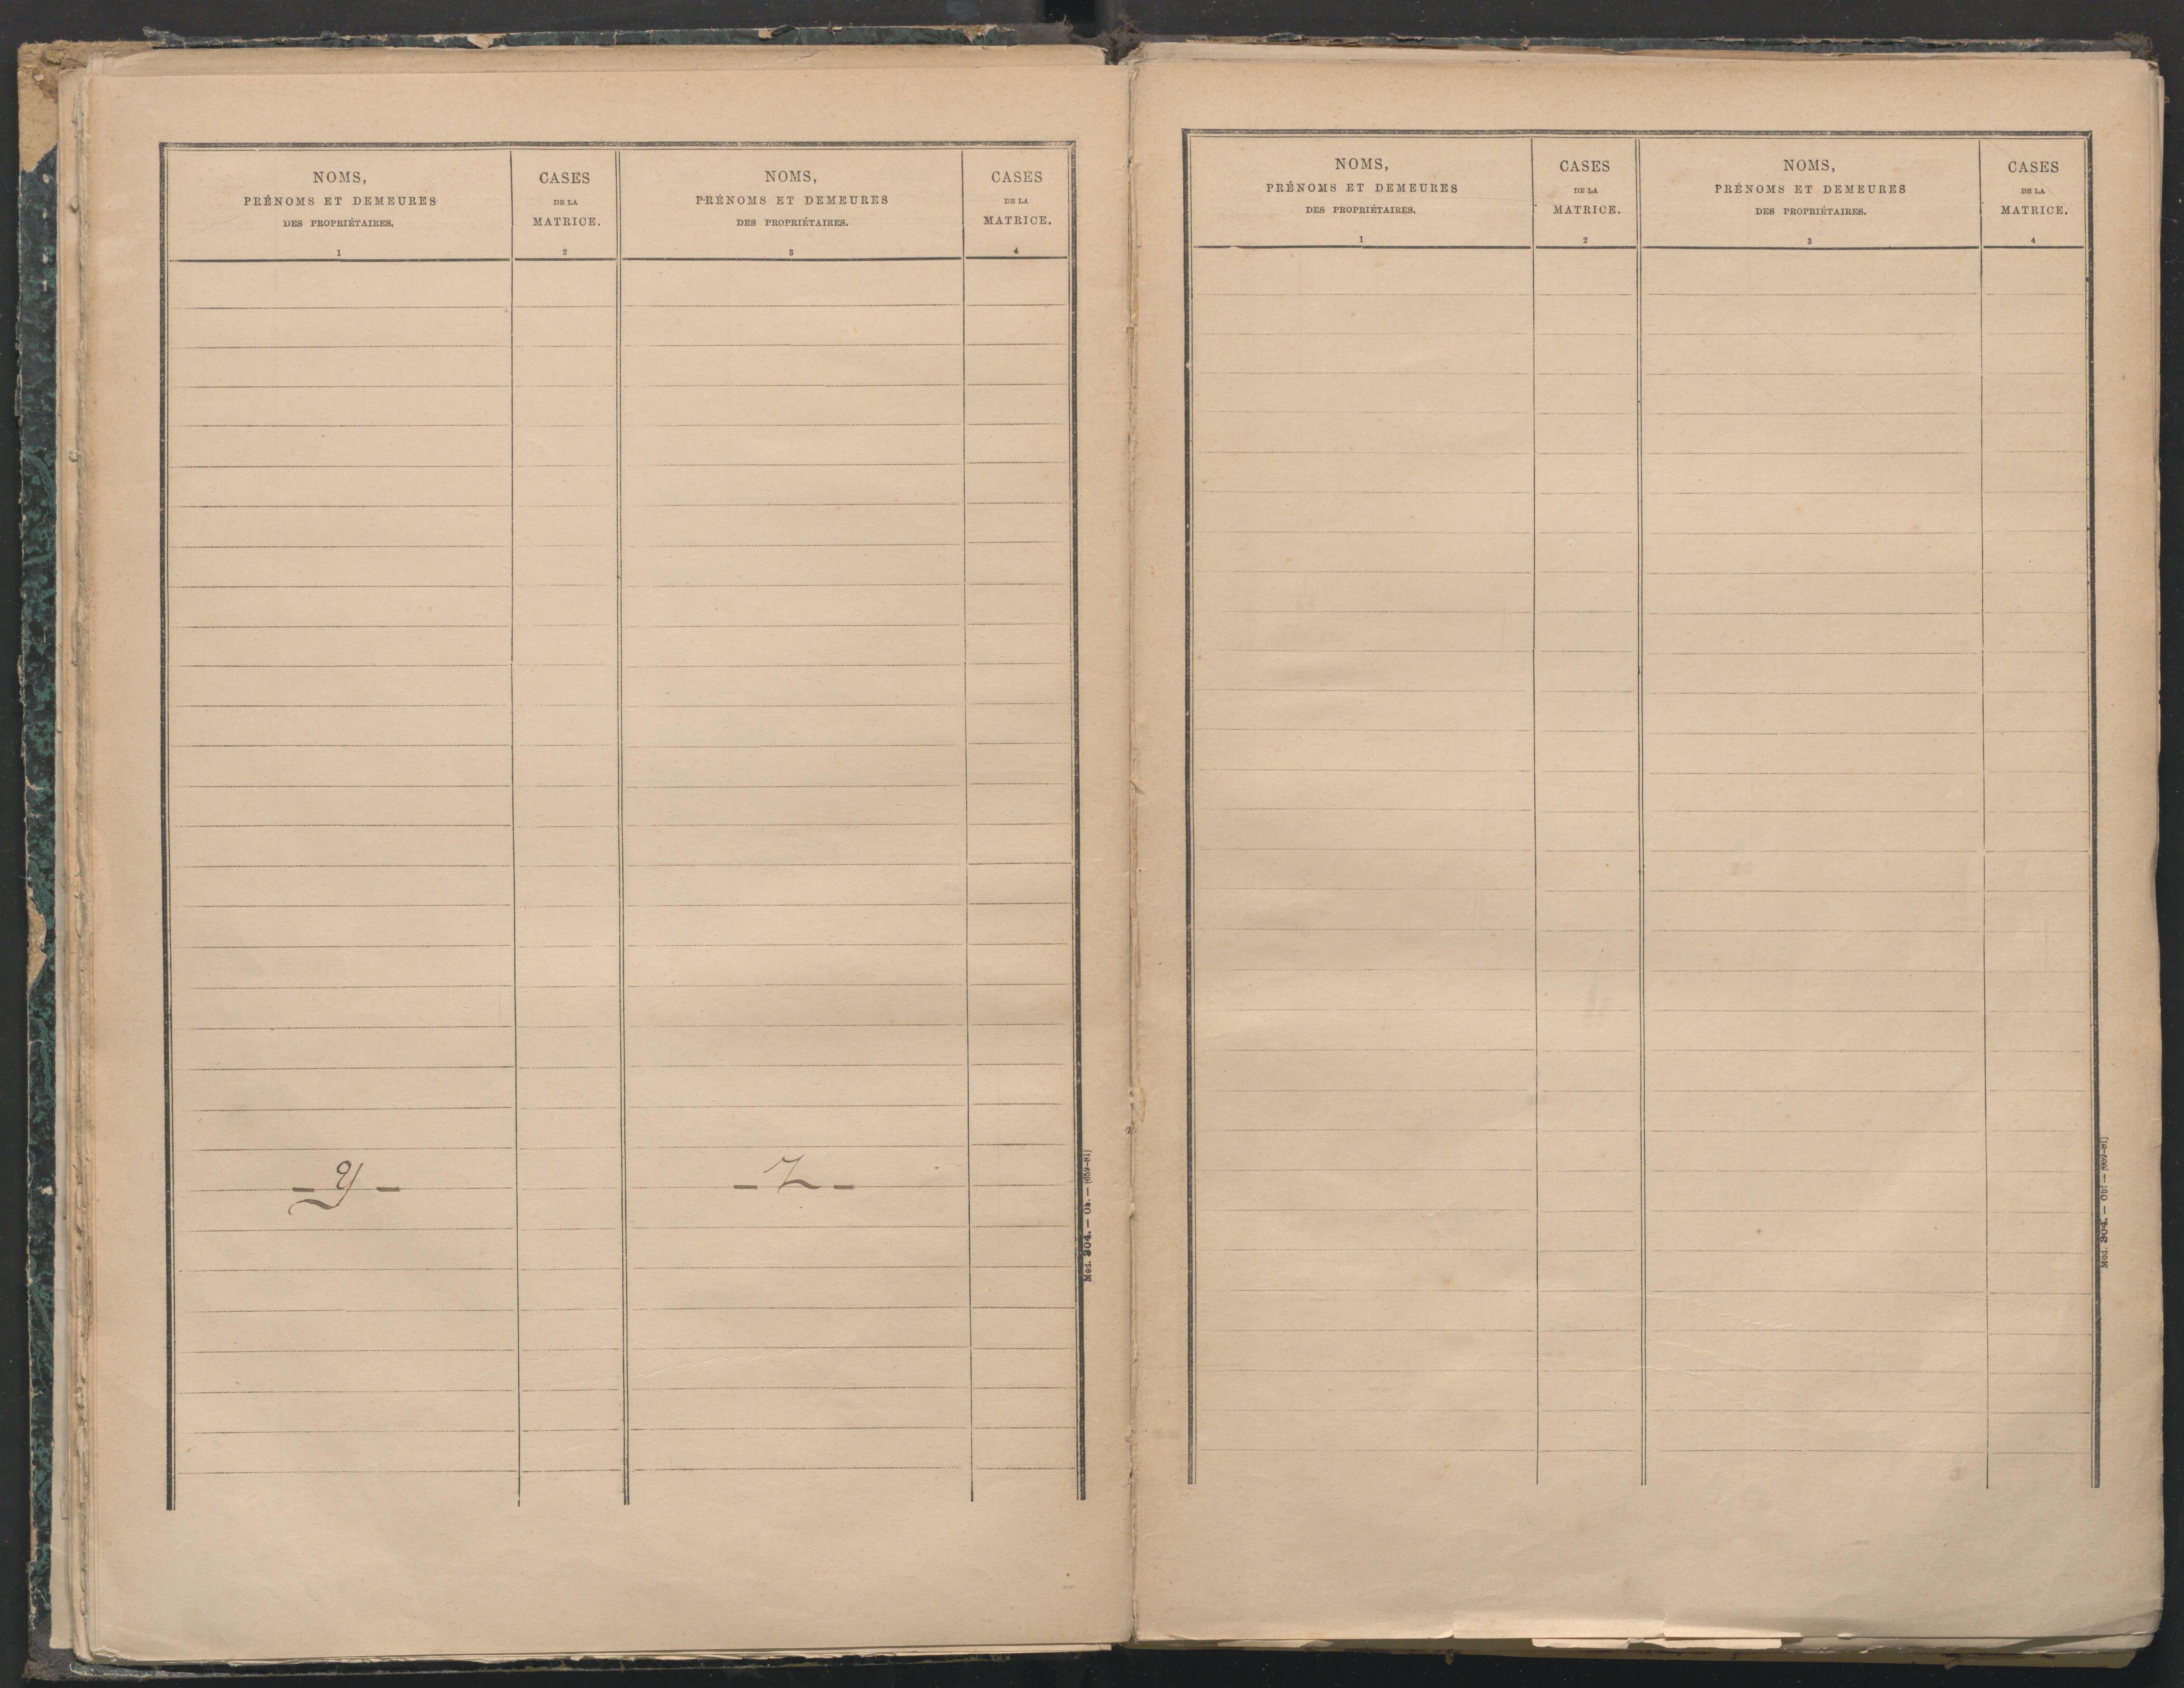 NOMS,
PRÉNOMS ET DEMEURES
DES PROPRIÉTAIRES.
1
CASES
DE LA
MATRICE.
2
NOMS,
PRÉNOMS ET DEMEURES
DES PROPRIÉTAIRES.
3
CASES
DE LA
MATRICE.
4
– Y –
– Z –
Mod. 304. — Ob. — (659-81)
NOMS,
PRÉNOMS ET DEMEURES
DES PROPRIÉTAIRES.
1
CASES
DE LA
MATRICE.
2
NOMS,
PRÉNOMS ET DEMEURES
DES PROPRIÉTAIRES.
3
CASES
DE LA
MATRICE.
4
Mod. 304. — Obf — (659-81)